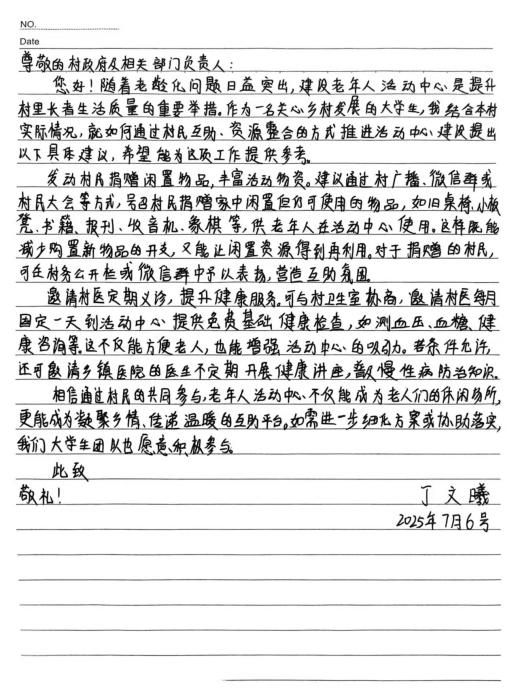 NO.
Date
尊敬的村政府及相关部门负责人：
您好！随着老龄化问题日益突出，建设老年人活动中心是提升
村里长者生活质量的重要举措。作为一名关心乡村发展的大学生，我结合本村
实际情况，就如何通过村民互助、资源整合的方式推进活动中心建设提出
以下具体建议，希望能为这项工作提供参考。
发动村民捐赠闲置物品，丰富活动物资。建议通过村广播、微信群或
村民大会等方式，号召村民捐赠家中闲置但仍可使用的物品，如旧桌椅、小板
凳、书籍、报刊、收音机、象棋等，供老年人在活动中心使用。这样既能
减少购置新物品的开支，又能让闲置资源得到再利用。对于捐赠的村民，
可在村务公开栏或微信群中予以表扬，营造互助氛围。
邀请村医定期义诊，提升健康服务。可与村卫生室协商，邀请村医每月
固定一天到活动中心提供免费基础健康检查，如测血压、血糖、健
康咨询等。这不仅能方便老人，也能增强活动中心的吸引力。若条件允许，
还可邀请乡镇医院的医生不定期开展健康讲座，普及慢性病防治知识。
相信通过村民的共同参与，老年人活动中心不仅能成为老人们的休闲场所，
更能成为凝聚乡情、传递温暖的互助平台。如需进一步细化方案或协助落实，
我们大学生团队也愿意积极参与。
此致
敬礼！
丁文曦
2025年7月6号